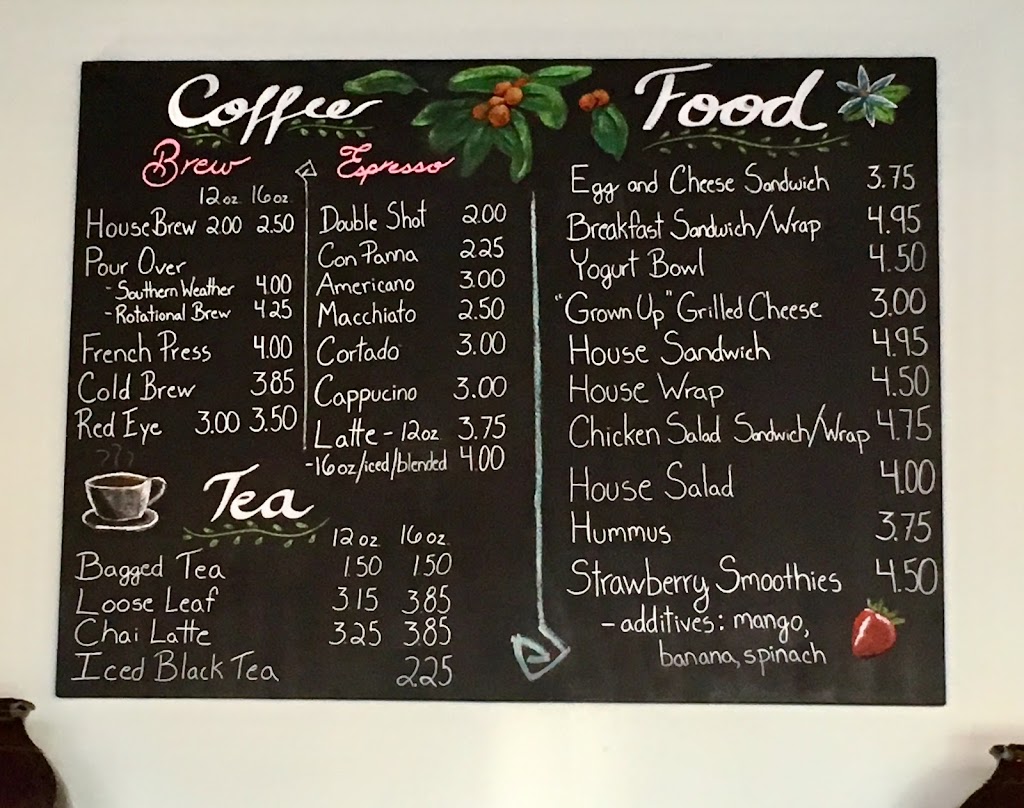 Coffee
Brew
12oz 16oz
House Brew 200 2.50
Pour Over
- Southern Weather 4.00
- Rotational Brew 4.25
French Press 4.00
Cold Brew 385
Red Eye 3.00 3.50
Espresso
Double Shot 2.00
Con Panna 225
Americano 3.00
Macchiato 2.50
Cortado 3.00
Cappucino 3.00
Latte - 12oz 3.75
-16oz/iced/blended 4.00
Tea
12oz 16oz.
Bagged Tea 150 150
Loose Leaf 315 385
Chai Latte 325 385
Iced Black Tea 225
Food
Egg and Cheese Sandwich 3.75
Breakfast Sandwich/Wrap 4.95
Yogurt Bowl 4.50
"Grown Up" Grilled Cheese 3.00
House Sandwich 4.95
House Wrap 4.50
Chicken Salad Sandwich/Wrap 4.75
House Salad 4.00
Hummus 3.75
Strawberry Smoothies 4.50
- additives: mango,
banana, spinach